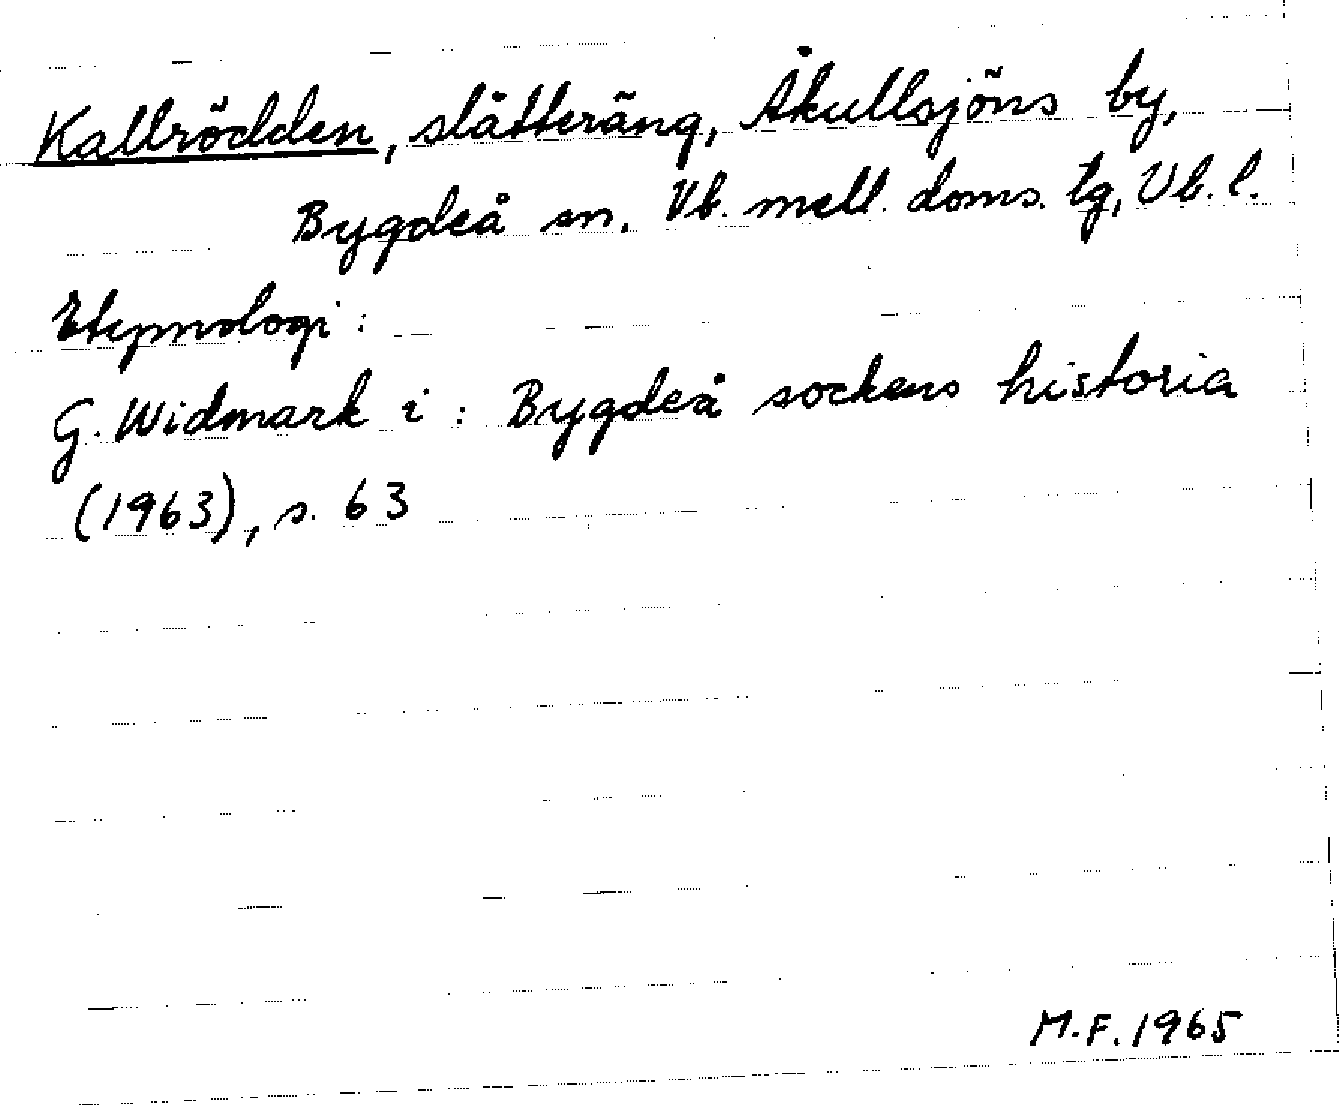 Kallrödden, slätteräng, Åkullsjöns by,
Bygdeå sn. Vb. mell. doms. tg, Vb. l.
Etymologi:
G. Widmark i: Bygdeå sockens historia
(1963), s. 63
M.F. 1965